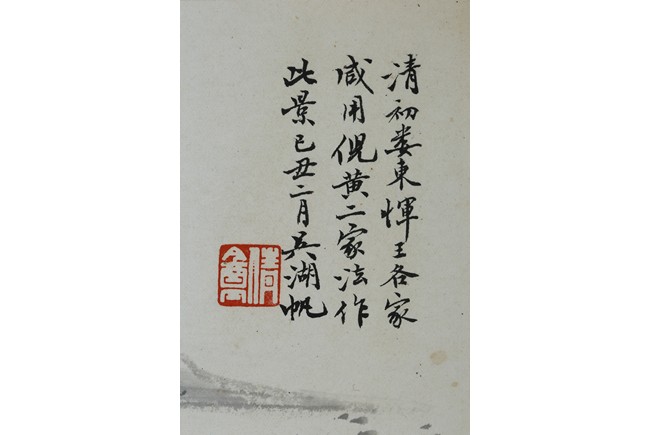 清初娄東惲王各家
咸用倪黄二家法作
此景己丑二月吴湖帆
倩盦